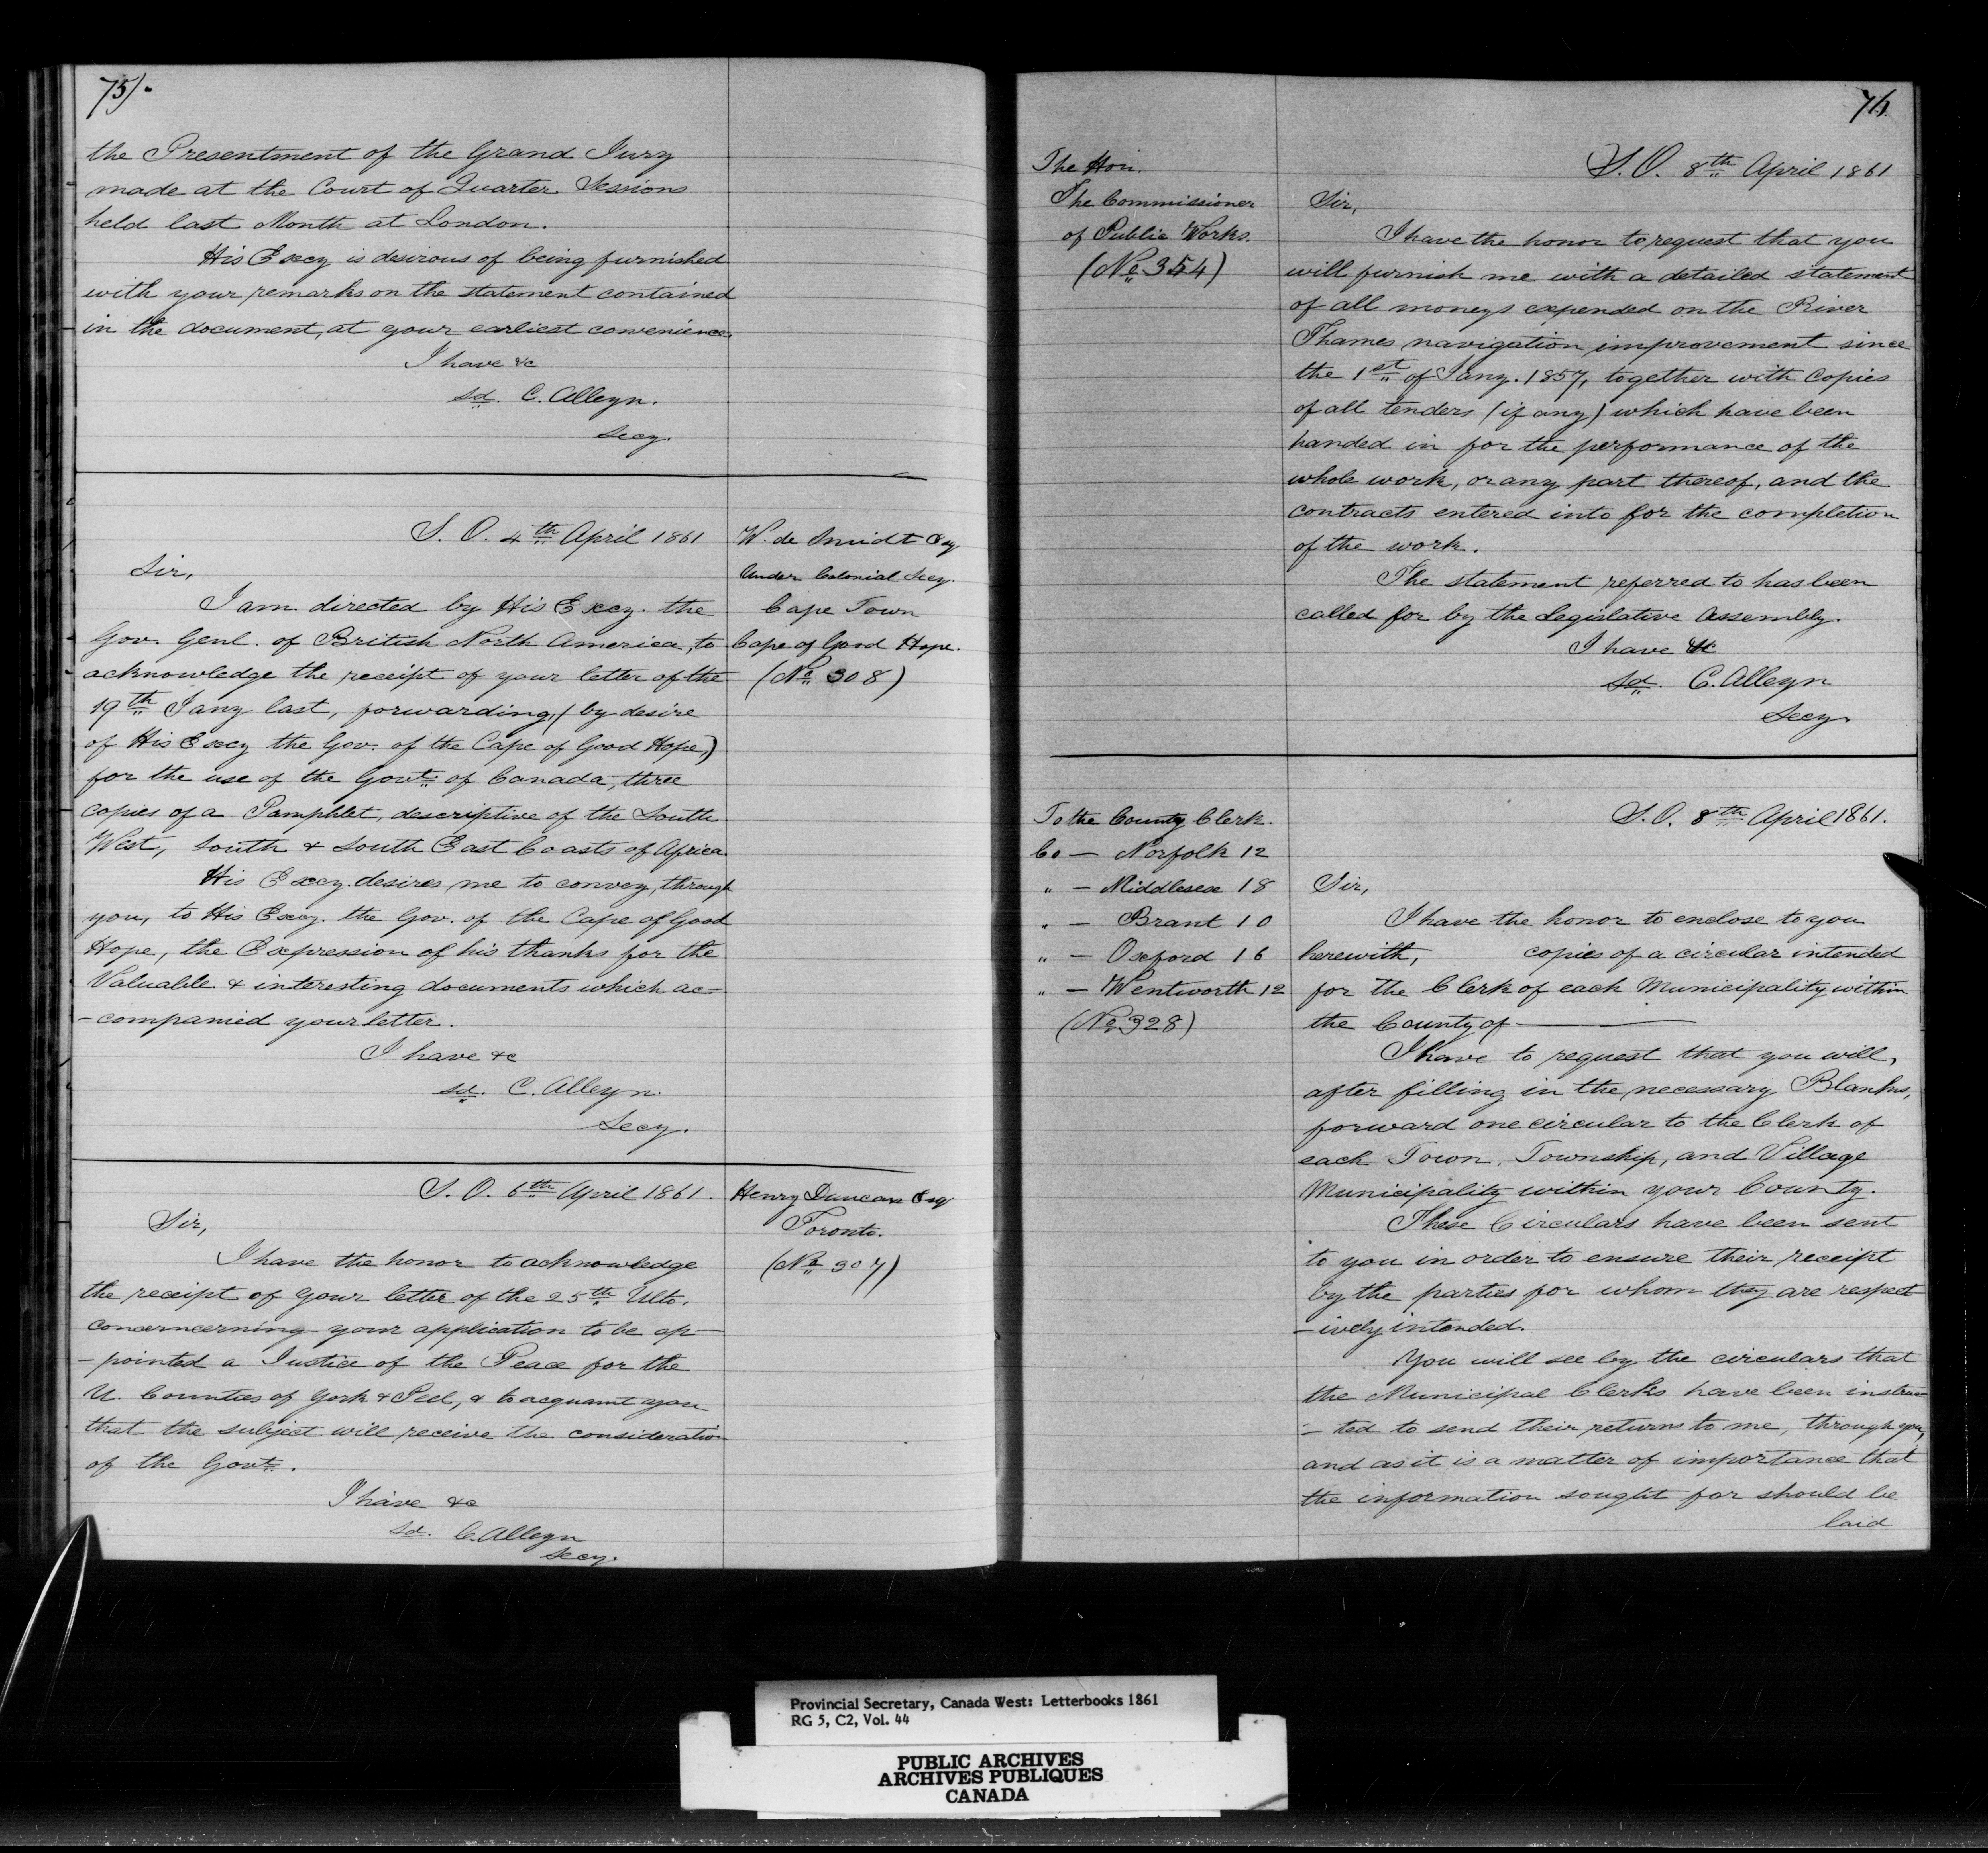 75/.
the Presentment of the Grand Jury
made at the Court of Quarter Sessions
held last Month at London.
His Excy is desirous of being furnished
with your remarks on the statement contained
in the document, at your earliest convenience.
I have &c
sd. C. Alleyn.
Secy.
S. O. 4th April 1861
W. de Smidt Esq
Under Colonial Secy.
Cape Town
Cape of Good Hope.
(No 308)
Sir,
I am directed by His Excy. the
Gov. Genl. of British North America, to
acknowledge the receipt of your letter of the
19th Jany last, forwarding, (by desire
of His Excy the Gov. of the Cape of Good Hope,)
for the use of the Govt. of Canada, three
copies of a Pamphlet, descriptive of the South
West, South & South East Coasts of Africa
His Excy. desires me to convey, through
you, to His Excy. the Gov. of the Cape of Good
Hope, the Expression of his thanks for the
Valuable & interesting documents which ac-
-companied your letter.
I have &c
sd. C. Alleyn.
Secy.
S. O. 6th April 1861.
Henry Duncan Esq
Toronto.
(No 307)
Sir,
I have the honor to acknowledge
the receipt of your letter of the 25th Ulto.
concerncerning your application to be ap-
-pointed a Justice of the Peace for the
U. Counties of York & Peel, & to acquaint you
that the subject will receive the consideration
of the Govt.
I have &c
sd. C. Alleyn
Secy.
76
The Hon.
The Commissioner
of Public Works.
(No 354)
S. O. 8th April 1861
Sir,
I have the honor to request that you
will furnish me with a detailed statement
of all moneys expended on the River
Thames navigation improvement since
the 1st of Jany. 1857, together with Copies
of all tenders (if any) which have been
handed in for the performance of the
whole work, or any part thereof, and the
contracts entered into for the completion
of the work.
The statement referred to has been
called for by the Legislative Assembly.
I have &c
Sd. C. Alleyn
Secy.
To the County Clerk.
Co — Norfolk 12
" — Middlesex 18
" — Brant 10
" — Oxford 16
" — Wentworth 12
(No 328)
S. O. 8th April 1861.
Sir,
I have the honor to enclose to you
herewith, copies of a circular intended
for the Clerk of each Municipality within
the County of ———
I have to request that you will,
after filling in the necessary Blanks,
forward one circular to the Clerk of
each Town, Township, and Village
Municipality within your County.
These Circulars have been sent
to you in order to ensure their receipt
by the parties for whom they are respect
-ively intended.
You will see by the circulars that
the Municipal Clerks have been instruc-
-ted to send their returns to me, through you,
and as it is a matter of importance that
the information sought for should be
laid
Provincial Secretary, Canada West: Letterbooks 1861
RG 5, C2, Vol. 44
PUBLIC ARCHIVES
ARCHIVES PUBLIQUES
CANADA